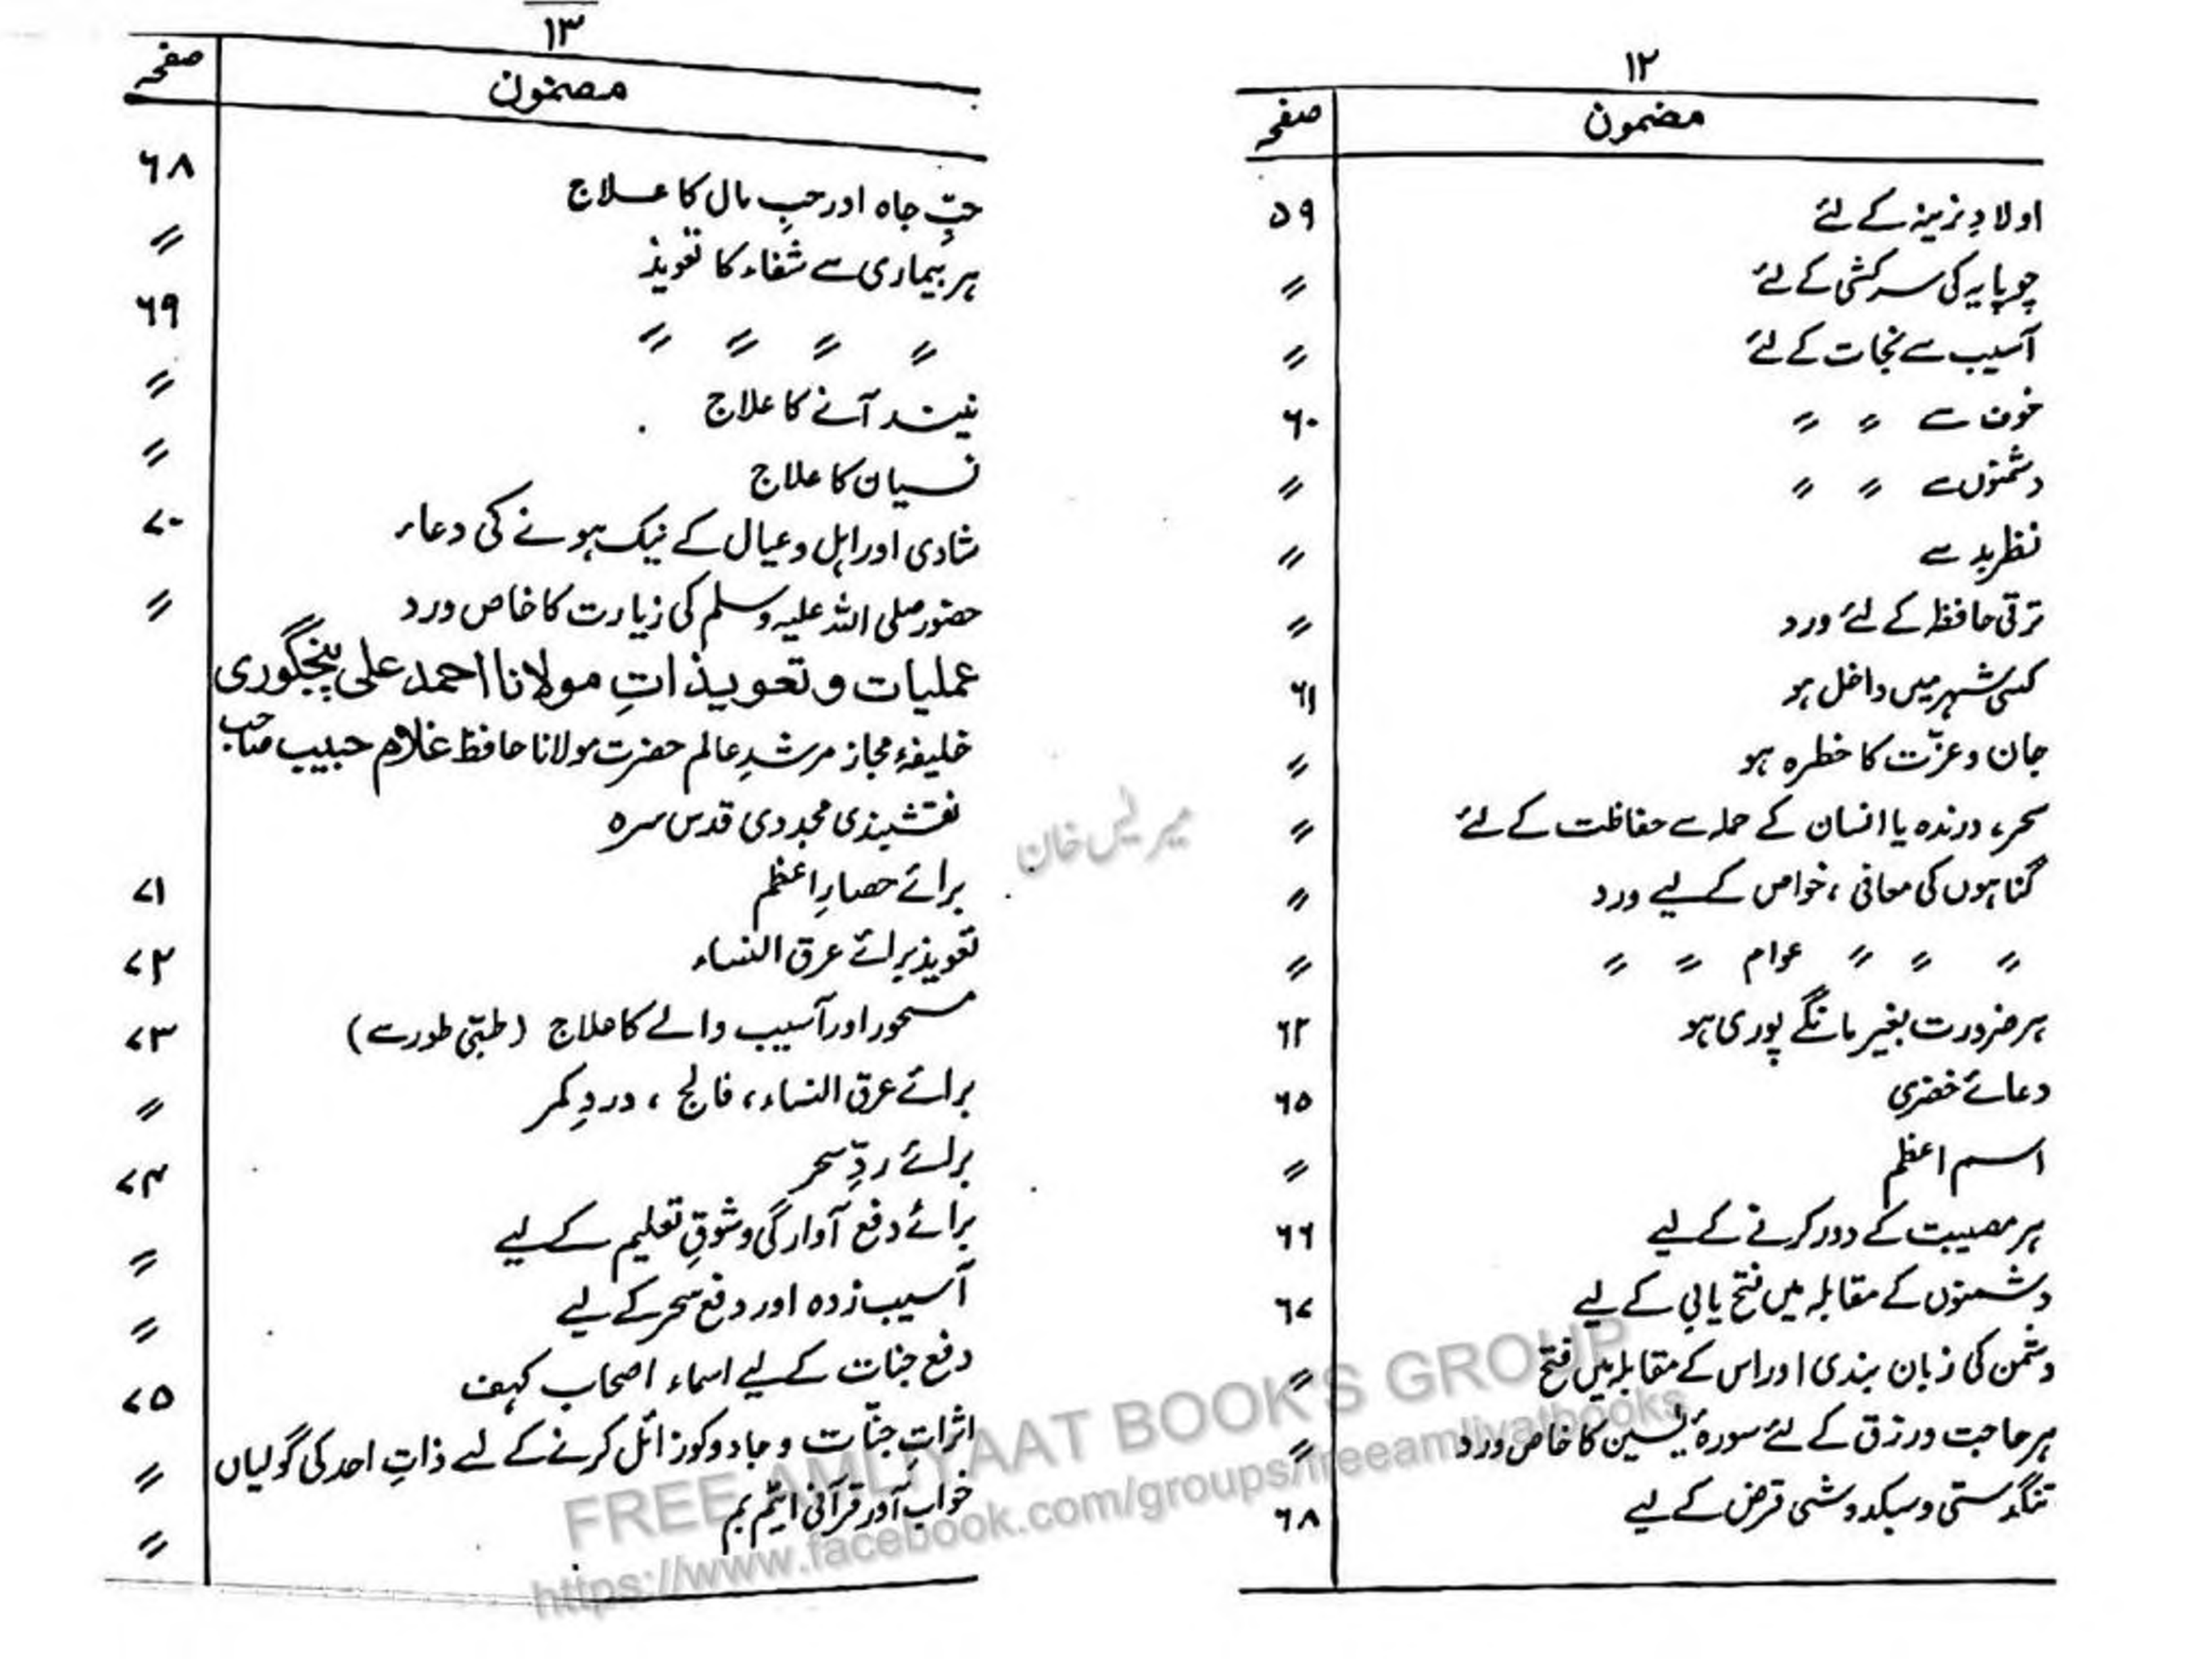 ۱۲
مضمون صفحہ
اولادِ نرینہ کے لئے ۵۹
چوپایہ کی سرکشی کے لئے 〃
آسیب سے نجات کے لئے 〃
خوف سے 〃 〃 ۶۰
دشمنوں سے 〃 〃 〃
نظرِ بد سے 〃
ترقی حافظہ کے لئے ورد 〃
کسی شہر میں داخل ہو ۶۱
جان و عزّت کا خطرہ ہو 〃
سحر، درندہ یا انسان کے حملہ سے حفاظت کے لئے 〃
گناہوں کی معافی، خواص کے لیے ورد 〃
〃 〃 〃 عوام 〃 〃 〃
ہر ضرورت بغیر مانگے پوری ہو ۶۲
دعائے خضری ۶۵
اسم اعظم 〃
ہر مصیبت کے دور کرنے کے لیے ۶۶
دشمنوں کے مقابلہ میں فتح یابی کے لیے ۶۷
دشمن کی زبان بندی اور اس کے مقابلہ میں فتح 〃
ہر حاجت و رزق کے لئے سورۂ یٰسین کا خاص ورد 〃
تنگدستی و سبکدوشی قرض کے لیے ۶۸
۱۳
مضمون صفحہ
حبِّ جاہ اور حبِ مال کا علاج ۶۸
ہر بیماری سے شفاء کا تعویذ 〃
〃 〃 〃 〃 ۶۹
نیند آنے کا علاج 〃
نسیان کا علاج 〃
شادی اور اہل و عیال کے نیک ہونے کی دعاء ۷۰
حضور صلی اللہ علیہ وسلم کی زیارت کا خاص ورد 〃
عملیات و تعویذاتِ مولانا احمد علی پنجگوری
خلیفۂ مجاز مرشدِ عالم حضرت مولانا حافظ غلام حبیب صاحب
نقشبندی مجددی قدس سرہ
برائے حصارِ اعظم ۷۱
تعویذ برائے عرق النساء ۷۲
مسحور اور آسیب والے کا علاج (طبّی طور سے) ۷۳
برائے عرق النساء، فالج، دردِ کمر 〃
برائے ردِّ سحر ۷۴
برائے دفع آوارگی و شوقِ تعلیم کے لیے 〃
آسیب زدہ اور دفع سحر کے لیے 〃
دفع جنات کے لیے اسماء اصحاب کہف ۷۵
اثراتِ جنّات و جادو کو زائل کرنے کے لیے ذاتِ احد کی گولیاں 〃
خواب آور قرآنی ایٹم بم 〃
خان
FREE AMLIYAAT BOOK'S GROUP
https://www.facebook.com/groups/freeamliyatbooks